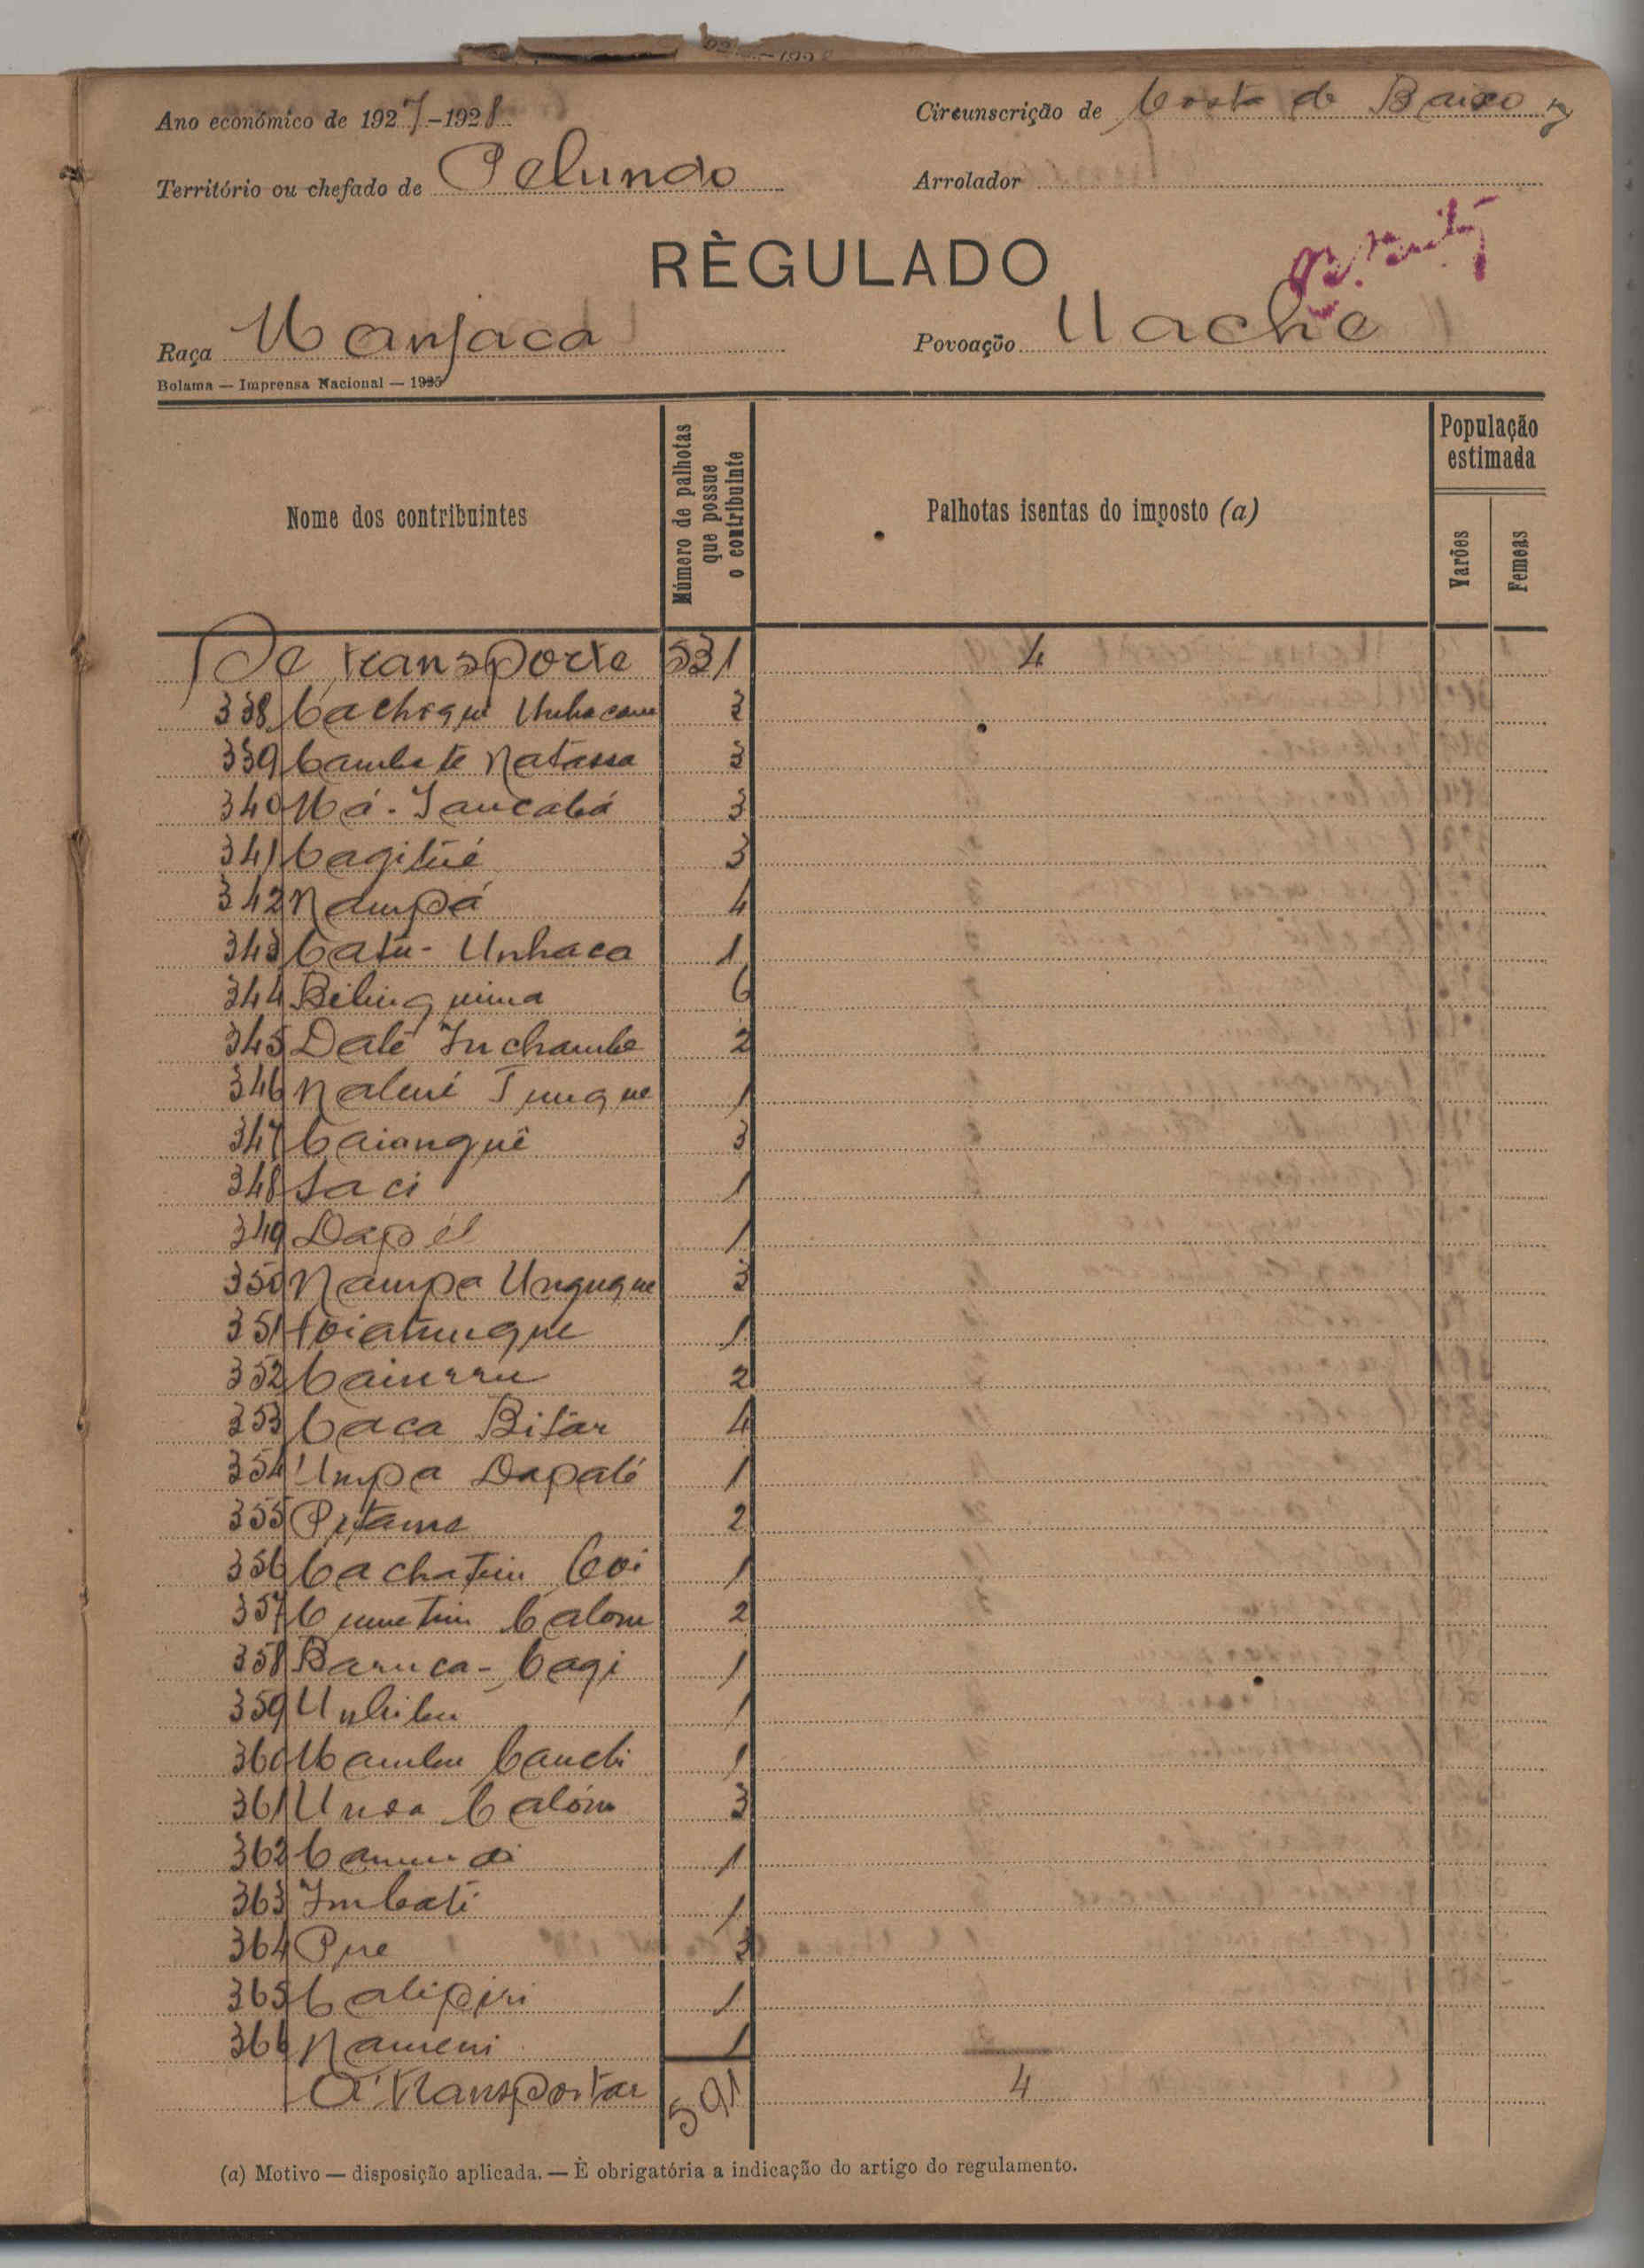 Ano económico de 1927-1928
Circunscrição de Costa de Baixo
Território ou chefado de Pelundo
Arrolador
RÈGULADO
Raça Manjaca
Povoação Uache
Bolama — Imprensa Nacional — 1925
Nome dos contribuintes
Número de palhotas que possue o contribuinte
Palhotas isentas do imposto (a)
População estimada
Varões
Femeas
De transporte 531 4
338 Cachegue 3
339 Cambete Natassa 3
340 Má-Jancabá 3
341 Cagitué 3
342 Nampá 4
343 Catu-Unhaca 1
344 Belinguina 6
345 Dalé Inchambe 2
346 1
347 Caianguê 3
348 Saci 1
349 Dapél 1
350 Nampa Ungugue 3
351 1
352 Cainrru 2
353 Caca Bitar 4
354 Umpa Dapalé 1
355 Pitame 2
356 Cachatim Coi 1
357 Calom 2
358 Baruca-Cagi 1
359 1
360 Mambu 1
361 Unsa Calóm 3
362 1
363 Imbati 1
364 Pue 3
365 Calipiri 1
366 Nameni 1
A transportar 591 4
(a) Motivo — disposição aplicada. — È obrigatória a indicação do artigo do regulamento.